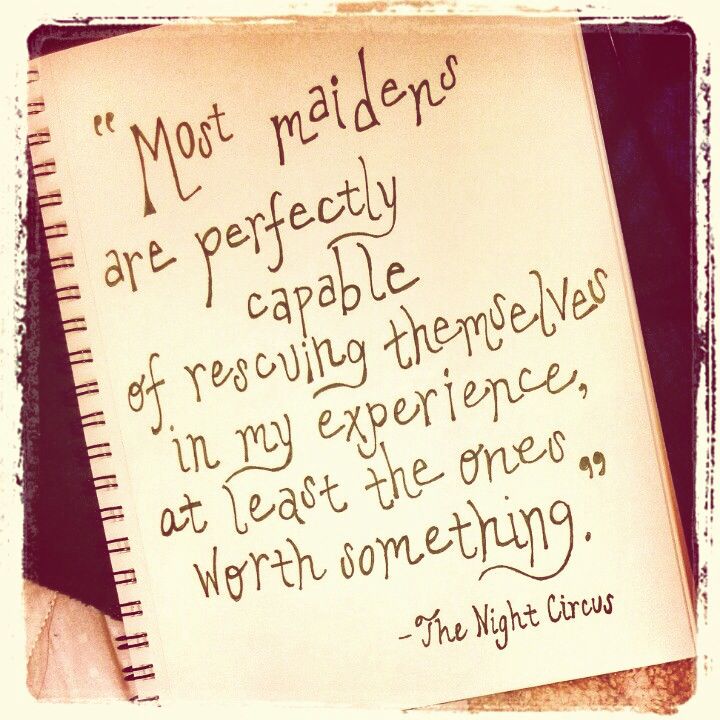 “Most maidens
are perfectly
capable
of rescuing themselves
in my experience,
at least the ones
worth something.”
-The Night Circus